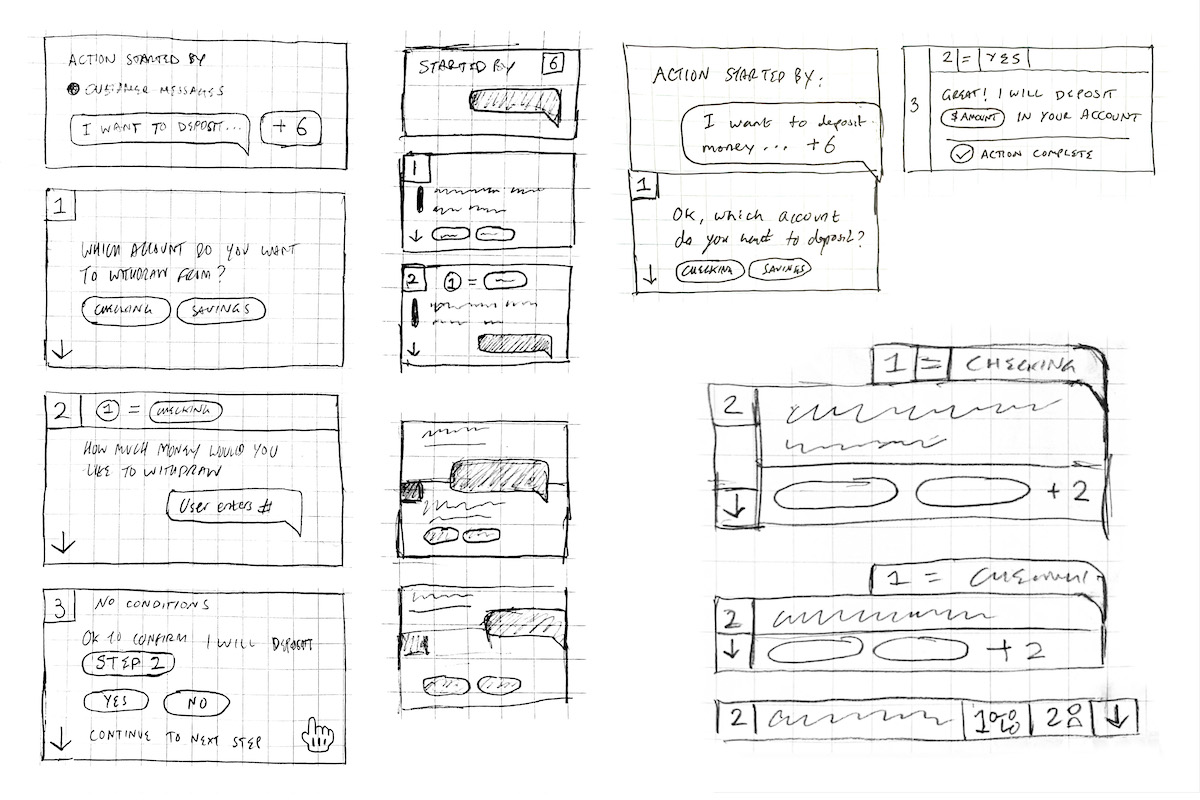 ACTION STARTED BY
CUSTOMER MESSAGES
I WANT TO DEPOSIT...
+ 6
1
WHICH ACCOUNT DO YOU WANT
TO WITHDRAW FROM?
CHECKING
SAVINGS
2
1 = CHECKING
HOW MUCH MONEY WOULD YOU
LIKE TO WITHDRAW
User enters #
3
NO CONDITIONS
OK TO CONFIRM I WILL DEPOSIT
STEP 2
YES
NO
CONTINUE TO NEXT STEP
STARTED BY
6
1
2
1 =
ACTION STARTED BY:
I want to deposit
money... +6
1
OK, which account
do you want to deposit?
CHECKING
SAVINGS
2 = YES
3
GREAT! I WILL DEPOSIT
$ AMOUNT IN YOUR ACCOUNT
ACTION COMPLETE
1 = CHECKING
2
+ 2
1 =
2
+ 2
2
1
2